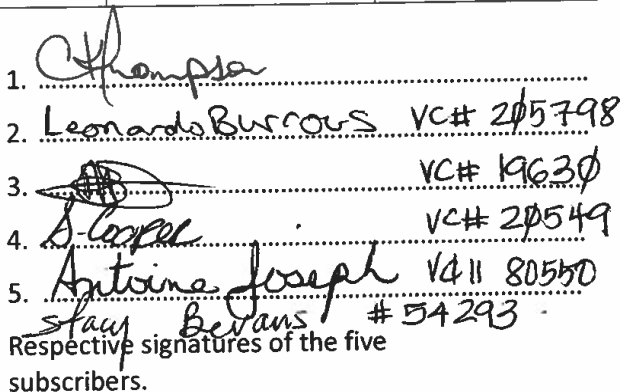 1. CThompson
2. Leonardo Burrows VC# 205798
3. VC# 19630
4. S. Cooper VC# 20549
5. Antoine Joseph VC# 80550
Stacy Bevans # 54293
Respective signatures of the five
subscribers.